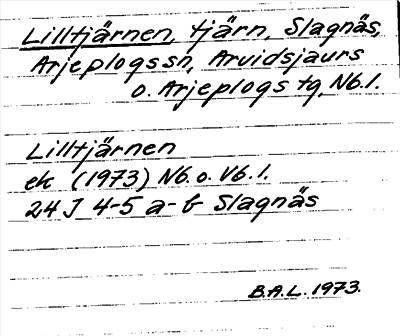 Lilltjärnen, tjärn, Slagnäs,
Arjeplogssn, Arvidsjaurs
o. Arjeplogs tg, Nb.l.
Lilltjärnen
ek (1973) Nb. o. Vb. l.
24 J 4-5 a-b Slagnäs
B.A.L. 1973.